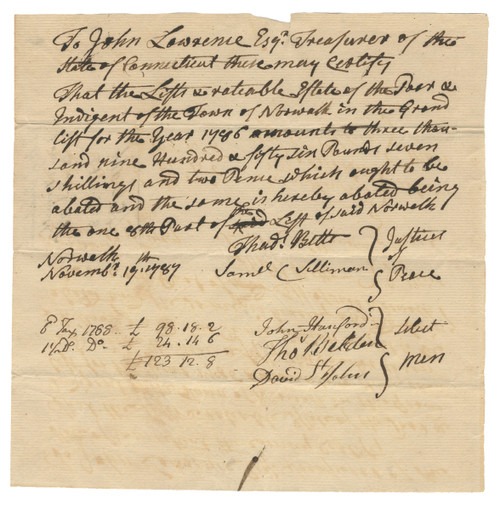 To John Lawrence Esqr. Treasurer of the
State of Connecticut these may Certify
That the Lists & rateable Estate of the Poor &
Indigent of the Town of Norwalk in the Grand
List for the Year 1786 amounts to three thou-
sand nine Hundred & fifty six Pounds seven
shillings and two Pence which ought to be
abated and the same is hereby abated being
the one 8th Part of the said List of said Norwalk
Thads. Betts } Justices
Norwalk
Novembr. 19th. 1787
Samel C Silliman } of Peace
8d Tax 1788. £ 98.18.2
Do £ 24.14.6
£123.12.8
John Hanford
Thos Belden } Select men
David